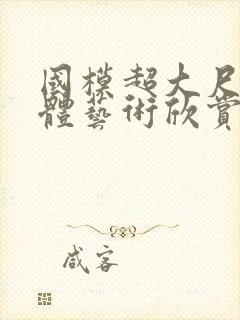 國模超大尺
體藝術欣賞
咸客